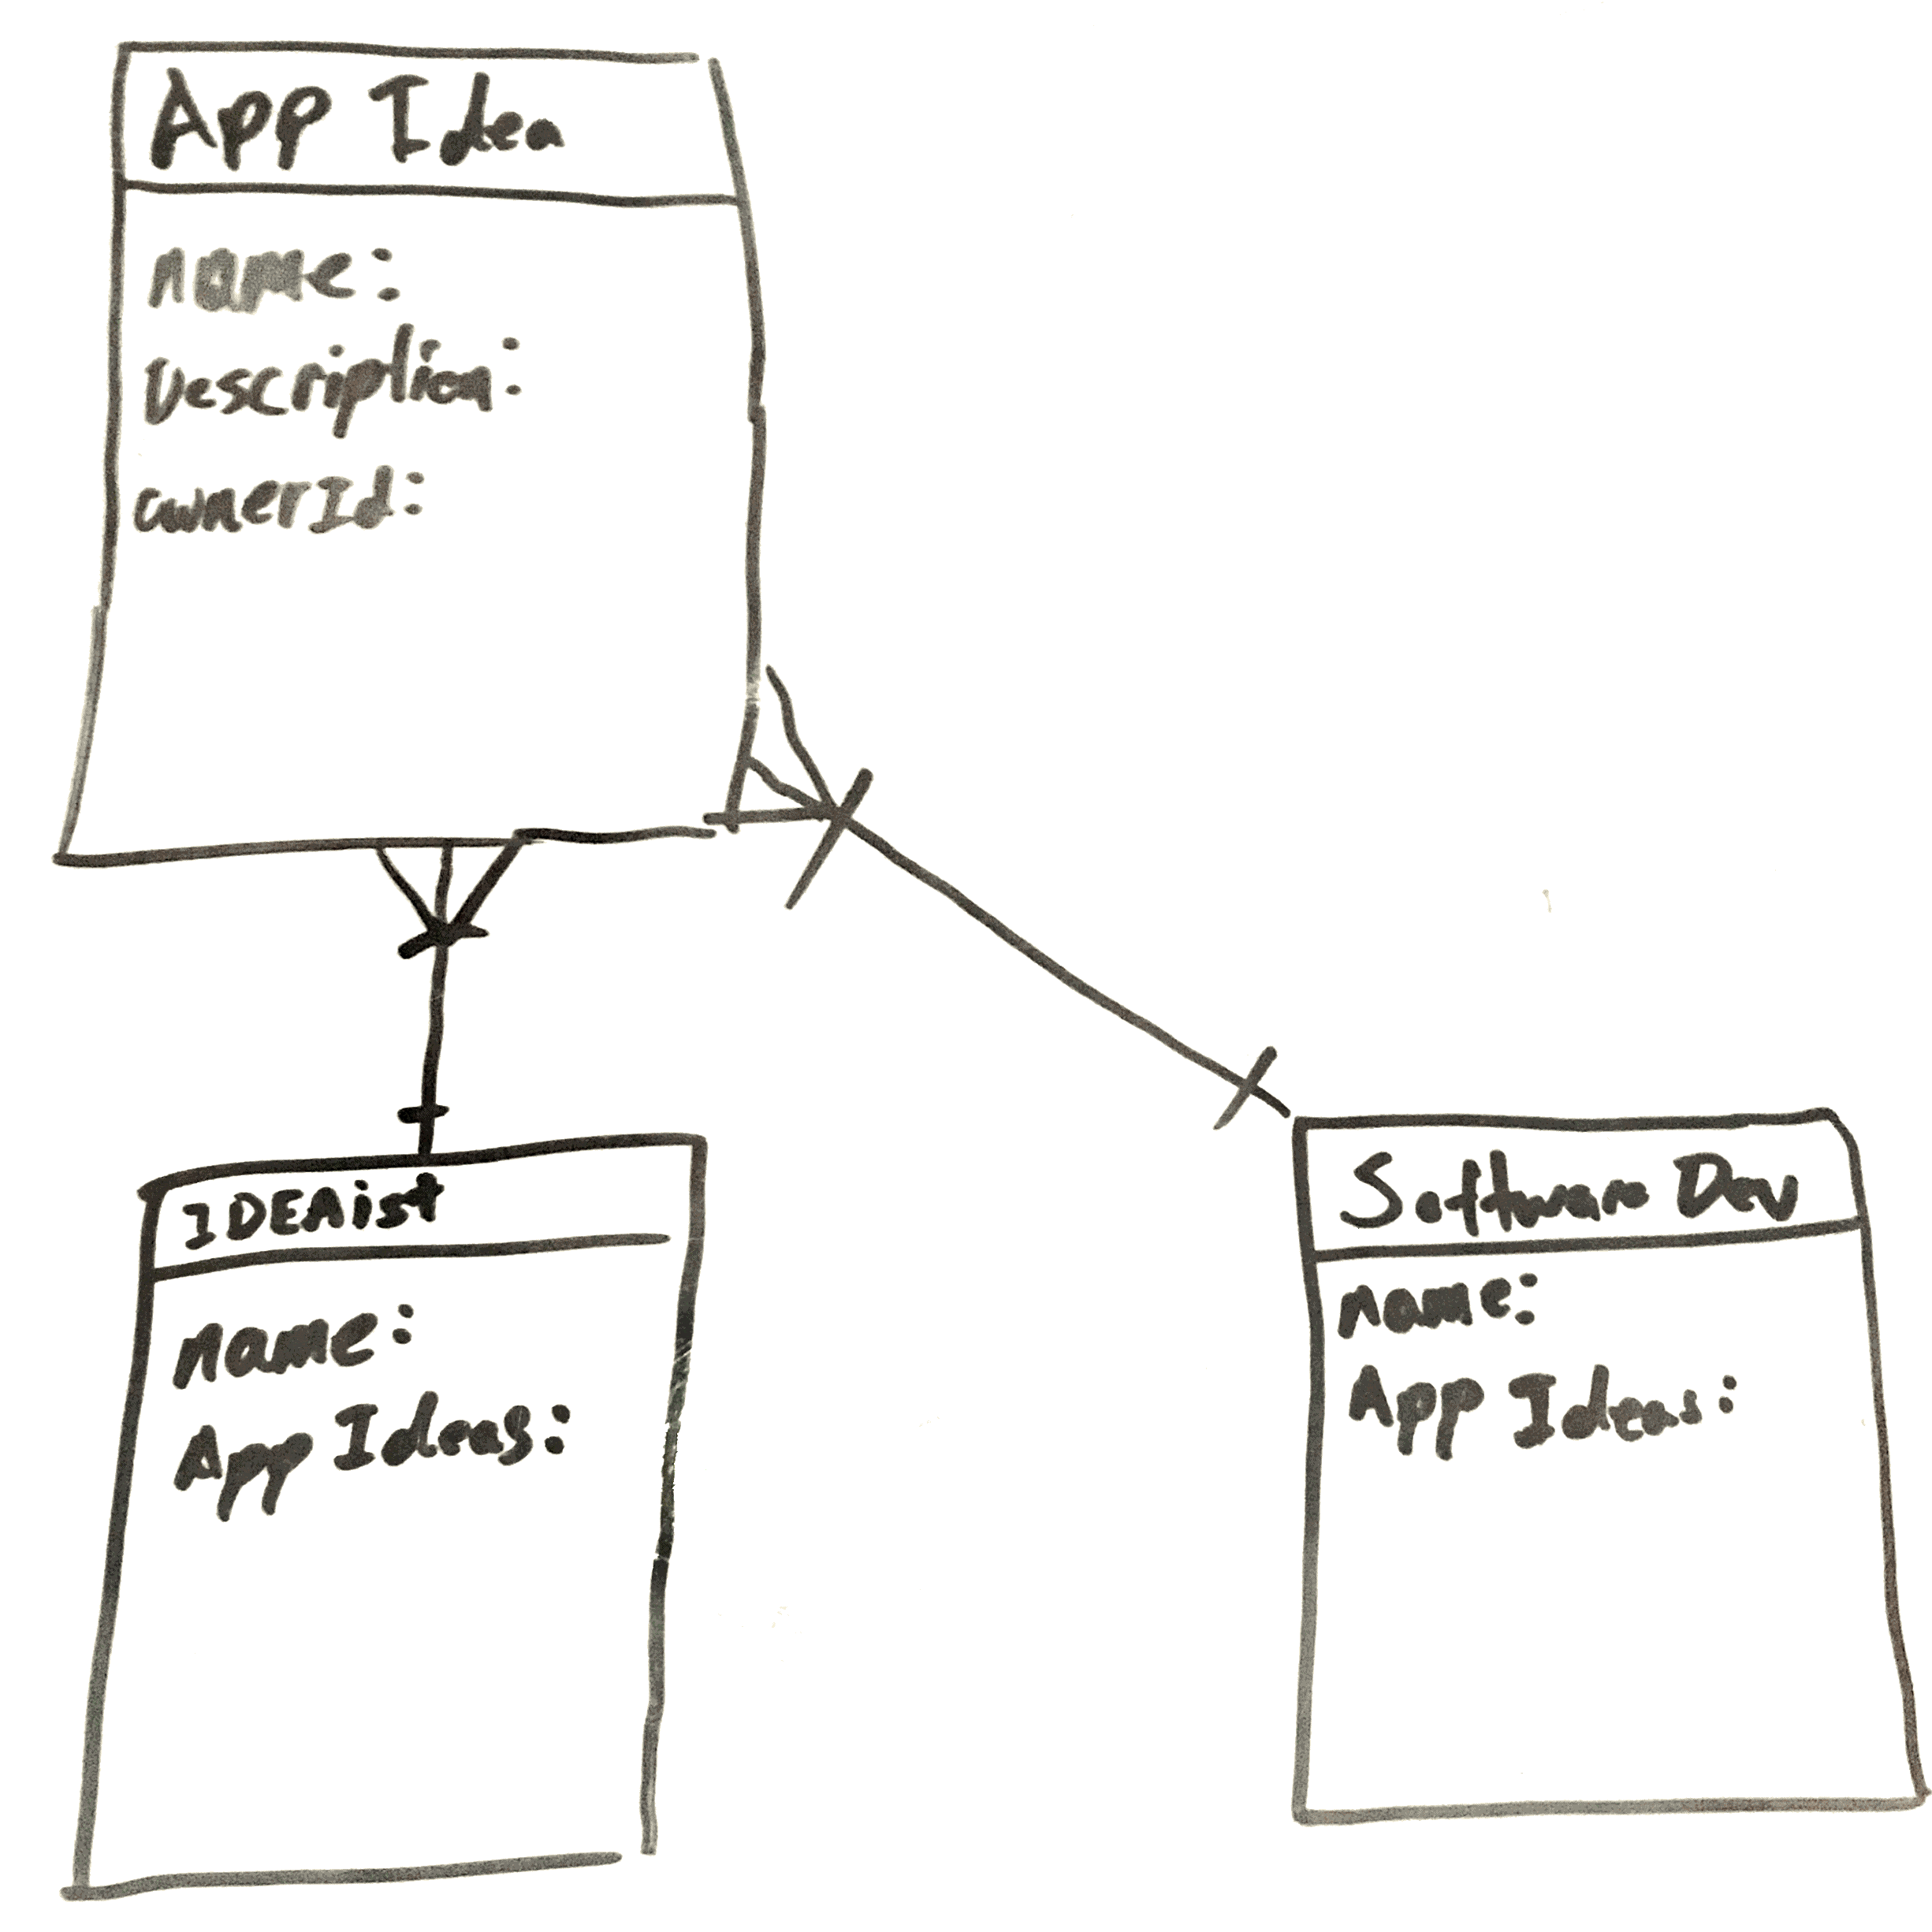 App Idea
name:
Description:
ownerId:
IDEAist
name:
App Ideas:
Software Dev
name:
App Ideas: